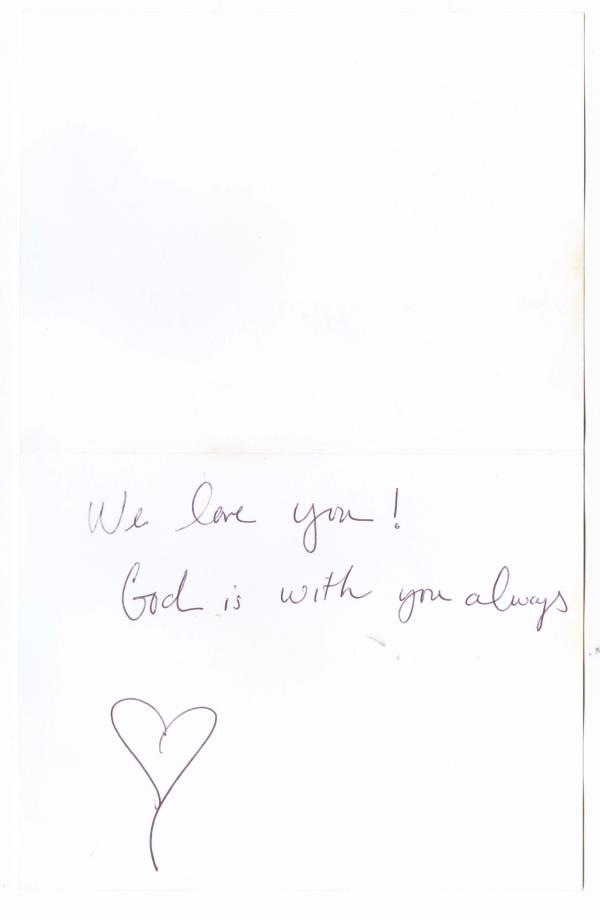 We love you!
God is with you always